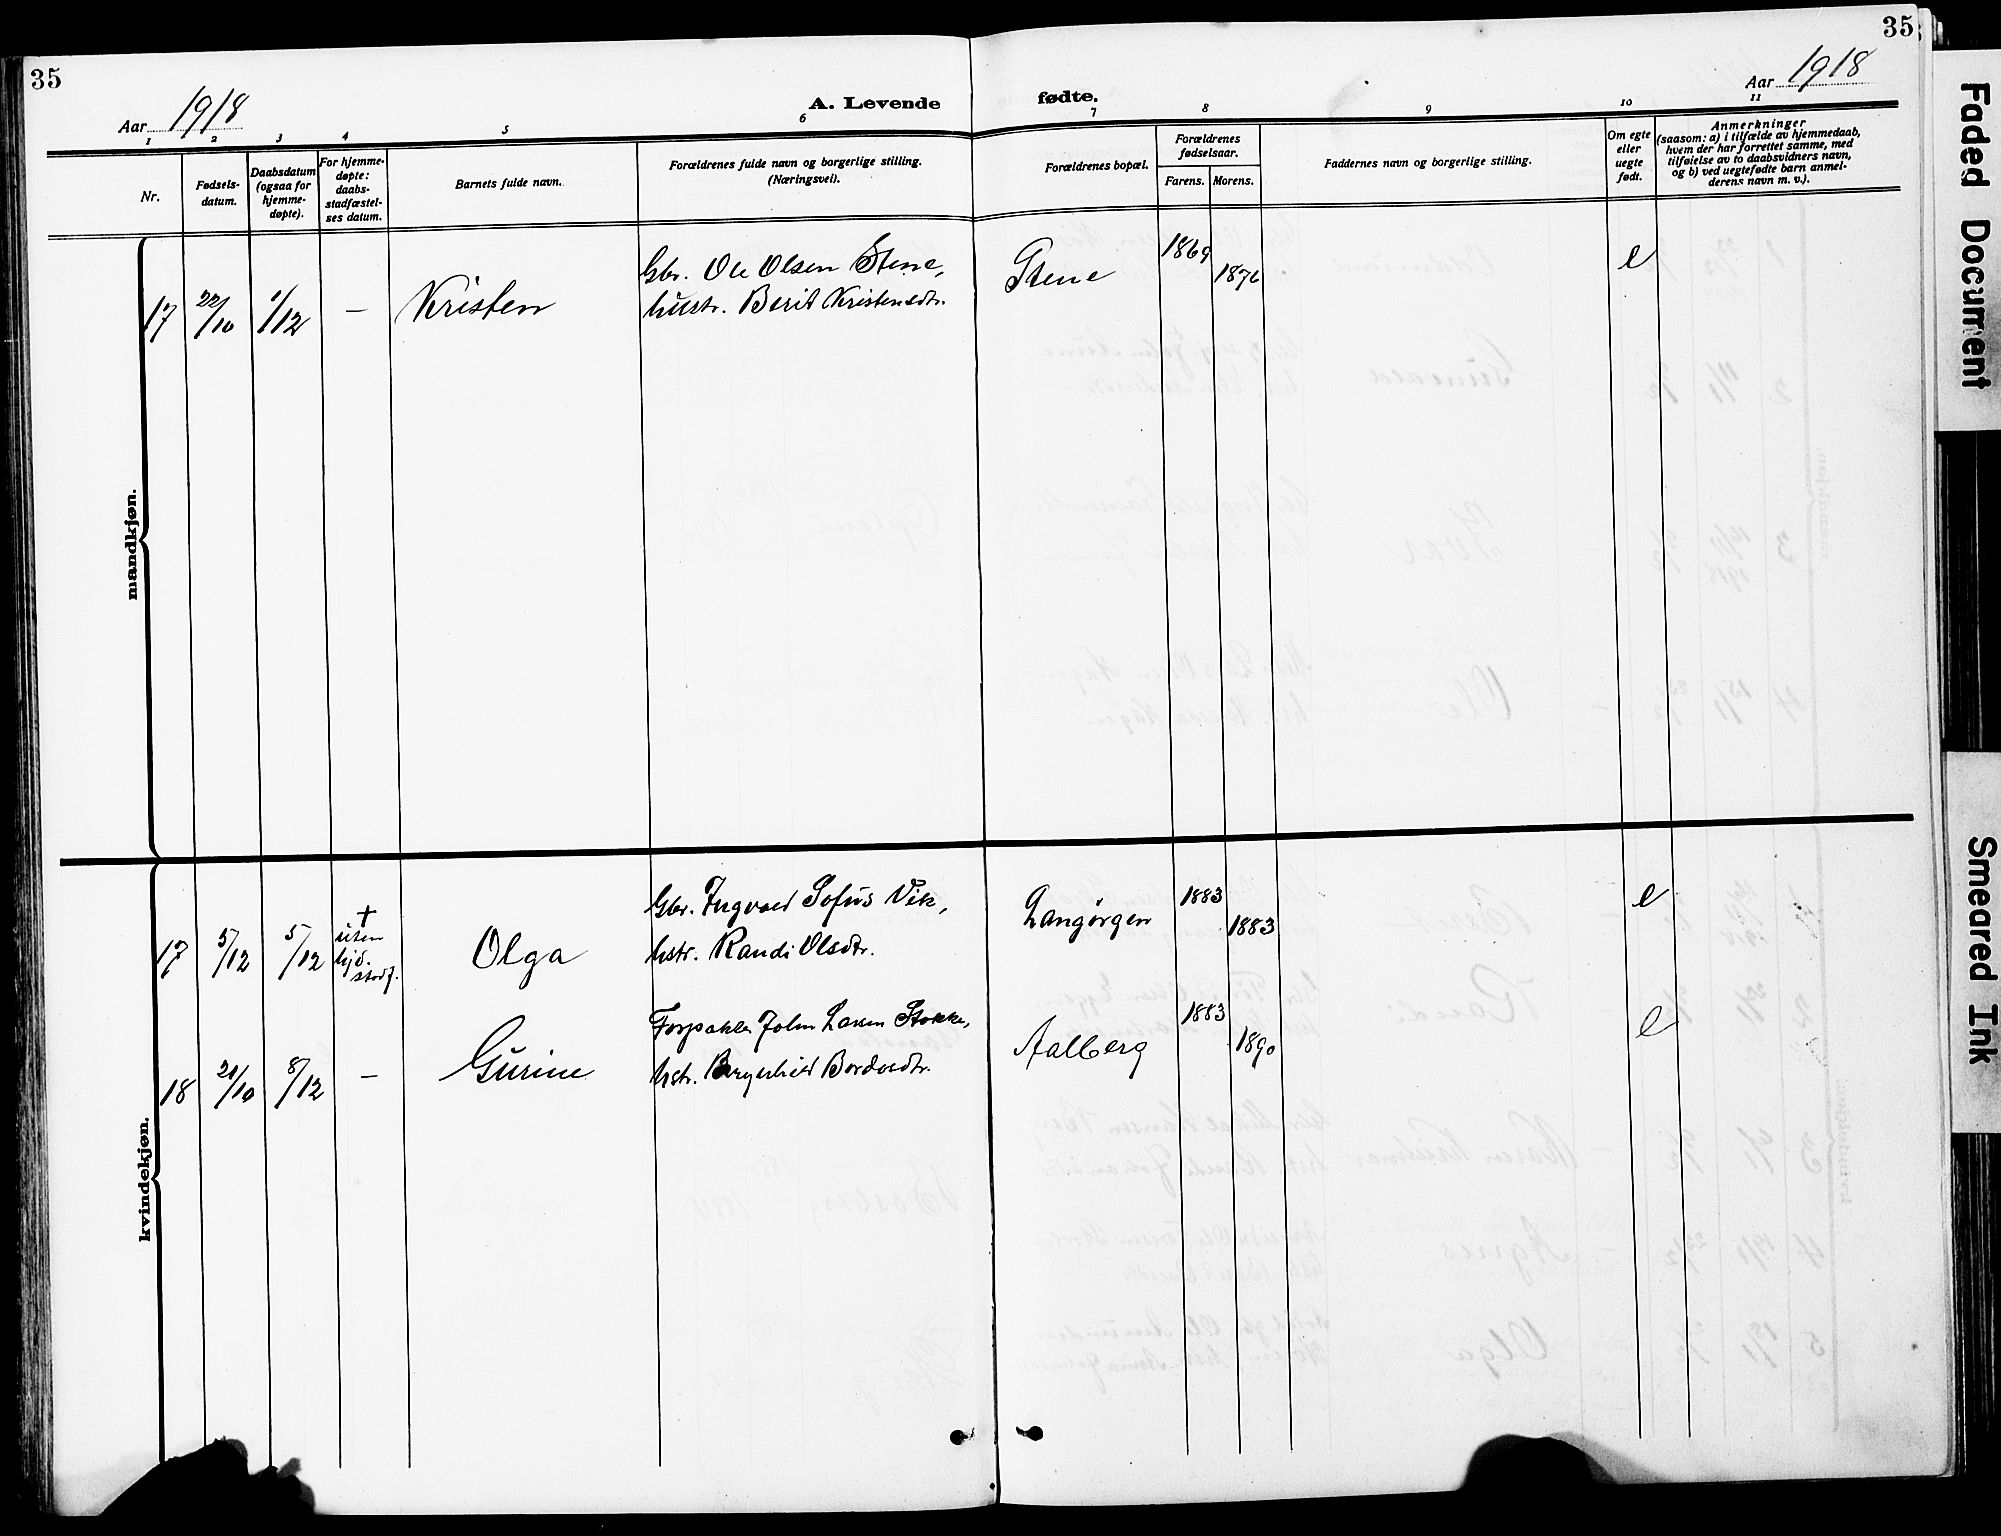 35
35
Aar 1918
A. Levende
fødte.
Aar 1918
1 2 3 4 5 6 7 8 9 10 11
Nr.
Fødsels-
datum.
Daabsdatum
(ogsaa for
hjemme-
døpte).
For hjemme-
døpte:
daabs-
stadfæstel-
ses datum.
Barnets fulde navn.
Forældrenes fulde navn og borgerlige stilling.
(Næringsvei).
Forældrenes bopæl.
Forældrenes
fødselsaar.
Farens. Morens.
Faddernes navn og borgerlige stilling.
Om egte
eller
uegte
født.
Anmerkninger
(saasom: a) i tilfælde av hjemmedaab,
hvem der har forrettet samme, med
tilføielse av to daabsvidners navn,
og b) ved uegtefødte barn anmel-
derens navn m. v.).
mandkjøn.
17 22/10 1/12 — Kristen
Gbr. Ole Olsen Stene,
hustr. Berit Kristensdtr.
Stene 1869 1876 e
kvindekjøn.
17 5/12 5/12
†
uten
hjd.
stadf.
Olga
Gbr. Ingvald Sofus Vik,
hstr. Randi Olsdtr.
Langørgen 1883 1883 e
18 20/10 8/12 — Gurine
Forpakter John Larsen Stokke,
hstr. Bergenhild Bordvedtr.
Aalberg 1883 1890 e
Faded Document
Smeared Ink